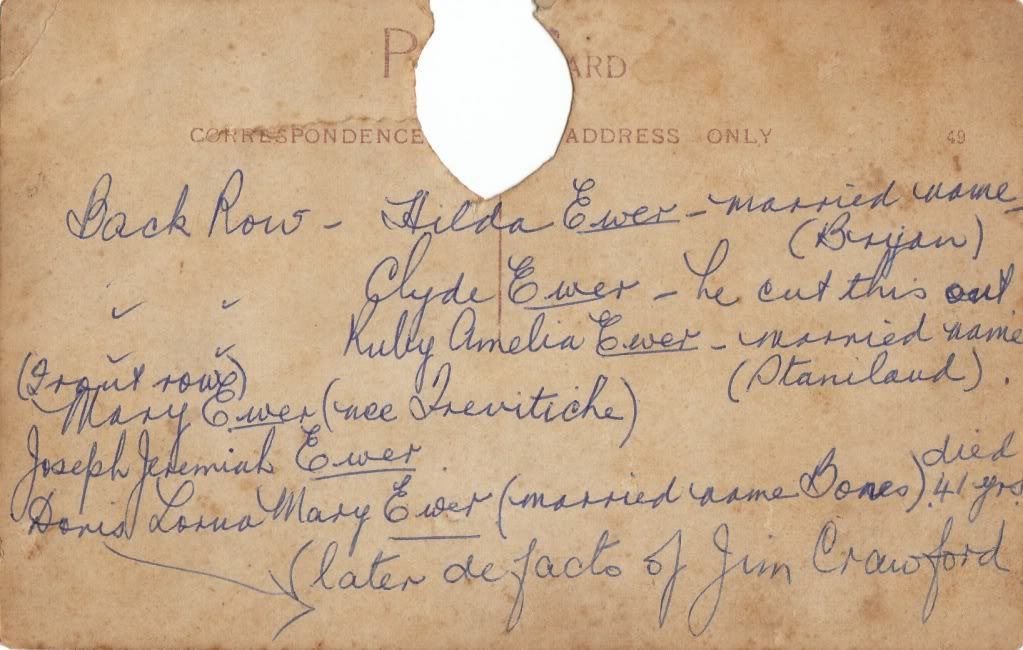 P ARD
CORRESPONDENCE ADDRESS ONLY 49
Back Row - Hilda Ewer - married name -
(Bryan)
Clyde Ewer - he cut this out
Ruby Amelia Ewer - married name
(Staniland).
(Front row)
Mary Ewer (nee Trevitiche)
Joseph Jeremiah Ewer
Doris Lorna Mary Ewer (married name Bones) died 41 yrs
(later defacto of Jim Crawford